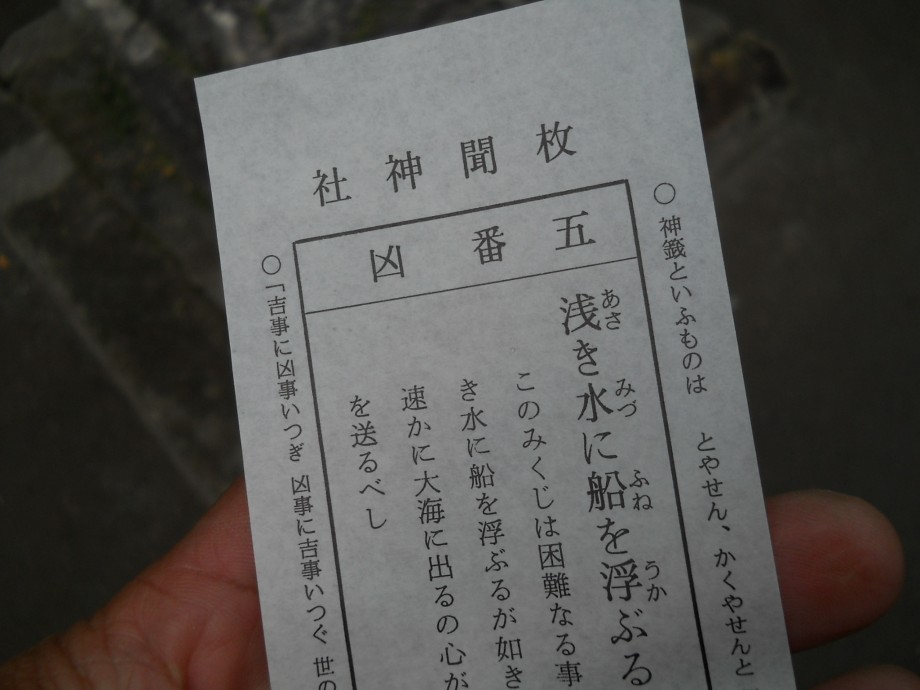 枚聞神社
○神籤といふものは　とやせん、かくやせんと
五番　凶
あさ　みづ　ふね　うか
浅き水に船を浮ぶる
このみくじは困難なる事
き水に船を浮ぶるが如き
速かに大海に出るの心が
を送るべし
○「吉事に凶事いつぎ　凶事に吉事いつぐ　世の